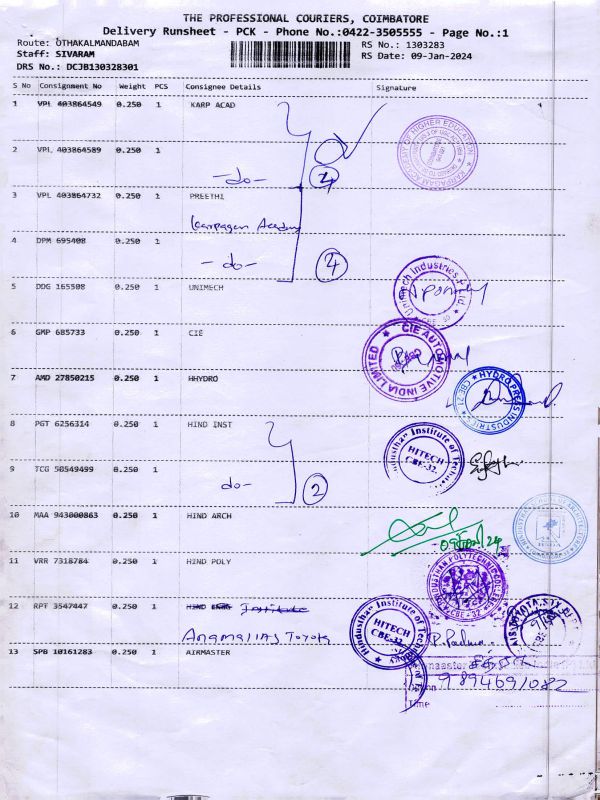 THE PROFESSIONAL COURIERS, COIMBATORE
Delivery Runsheet - PCK - Phone No.:0422-3505555 - Page No.:1
Route: OTHAKALMANDABAM
RS No.: 1303283
Staff: SIVARAM
RS Date: 09-Jan-2024
DRS No.: DCJB130328301
S No Consignment No Weight PCS Consignee Details Signature
1 VPL 403864549 0.250 1 KARP ACAD
2 VPL 403864589 0.250 1
-do- 2
KARPAGAM ACADEMY OF HIGHER EDUCATION
3 VPL 403864732 0.250 1 PREETHI
Karpagam Academy
4 DPM 695408 0.250 1
-do- 4
5 DDG 165508 0.250 1 UNIMECH
Unimech Industries P. Ltd.
CBE-32
6 GMP 685733 0.250 1 CIE
CIE AUTOMOTIVE INDIA LIMITED
7 AMD 27850215 0.250 1 HHYDRO
HYDRO PRESS INDUSTRIES
CBE-21
8 PGT 6256314 0.250 1 HIND INST
Hindusthan Institute of Technology
HITECH
CBE-32.
9 TCG 50549499 0.250 1
do- 2
10 MAA 943000863 0.250 1 HIND ARCH
09 Jan 24
11 VRR 7318784 0.250 1 HIND POLY
HINDUSTHAN POLYTECHNIC COLLEGE
CBE-32
12 RPT 3547447 0.250 1 HIND Institute
Anamallais Toyota
Hindusthan Institute of Technology
HITECH
CBE-32
P. Padma
13 SPB 10161283 0.250 1 AIRMASTER
9894691082
Time